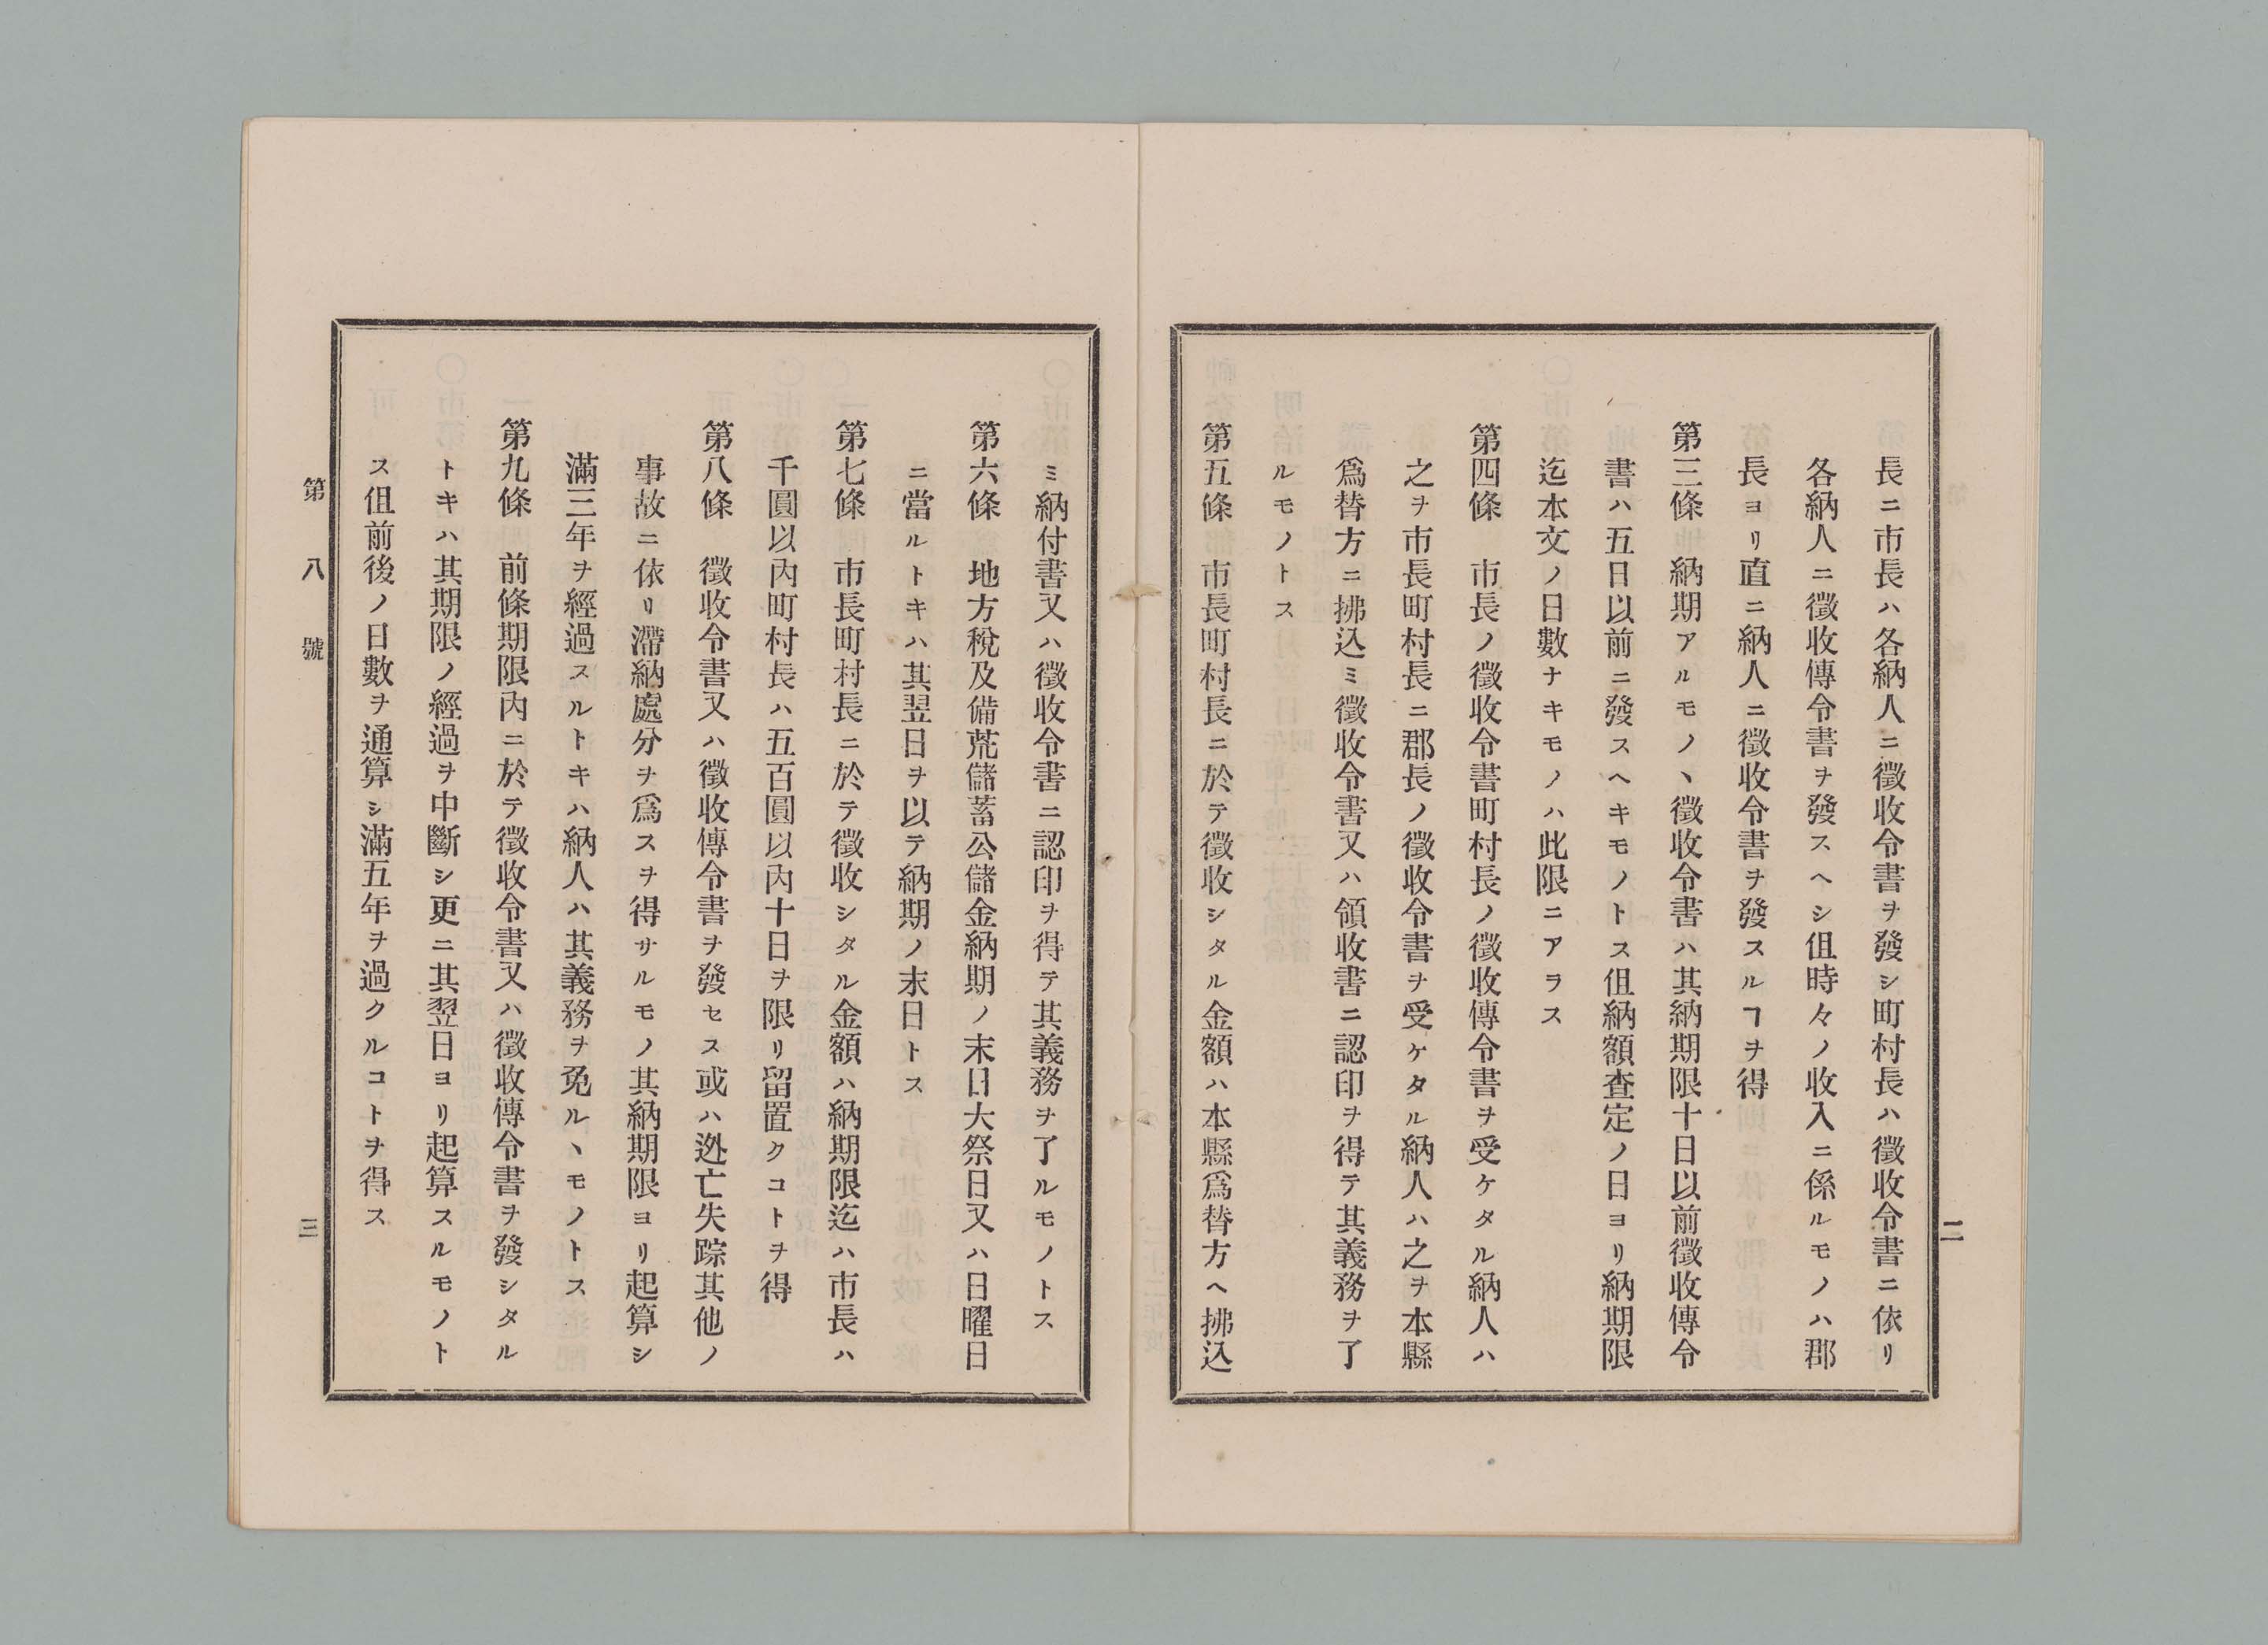 二
長ニ市長ハ各納人ニ徵收令書ヲ發シ町村長ハ徵收令書ニ依リ
各納人ニ徵收傳令書ヲ發スヘシ伹時々ノ收入ニ係ルモノハ郡
長ヨリ直ニ納人ニ徵收令書ヲ發スルヿヲ得
第三條　納期アルモノヽ徵收令書ハ其納期限十日以前徵收傳令
書ハ五日以前ニ發スヘキモノトス伹納額査定ノ日ヨリ納期限
迄本文ノ日數ナキモノハ此限ニアラス
第四條　市長ノ徵收令書町村長ノ徵收傳令書ヲ受ケタル納人ハ
之ヲ市長町村長ニ郡長ノ徵收令書ヲ受ケタル納人ハ之ヲ本縣
爲替方ニ拂込ミ徵收令書又ハ領收書ニ認印ヲ得テ其義務ヲ了
ルモノトス
第五條　市長町村長ニ於テ徵收シタル金額ハ本縣爲替方ヘ拂込
ミ納付書又ハ徵收令書ニ認印ヲ得テ其義務ヲ了ルモノトス
第六條　地方稅及備荒儲蓄公儲金納期ノ末日大祭日又ハ日曜日
ニ當ルトキハ其翌日ヲ以テ納期ノ末日トス
第七條　市長町村長ニ於テ徵收シタル金額ハ納期限迄ハ市長ハ
千圓以內町村長ハ五百圓以內十日ヲ限リ留置クコトヲ得
第八條　徵收令書又ハ徵收傳令書ヲ發セス或ハ迯亡失踪其他ノ
事故ニ依リ滯納處分ヲ爲スヲ得サルモノ其納期限ヨリ起算シ
滿三年ヲ經過スルトキハ納人ハ其義務ヲ免ルヽモノトス
第九條　前條期限內ニ於テ徵收令書又ハ徵收傳令書ヲ發シタル
トキハ其期限ノ經過ヲ中斷シ更ニ其翌日ヨリ起算スルモノト
ス伹前後ノ日數ヲ通算シ滿五年ヲ過クルコトヲ得ス
第八號
三